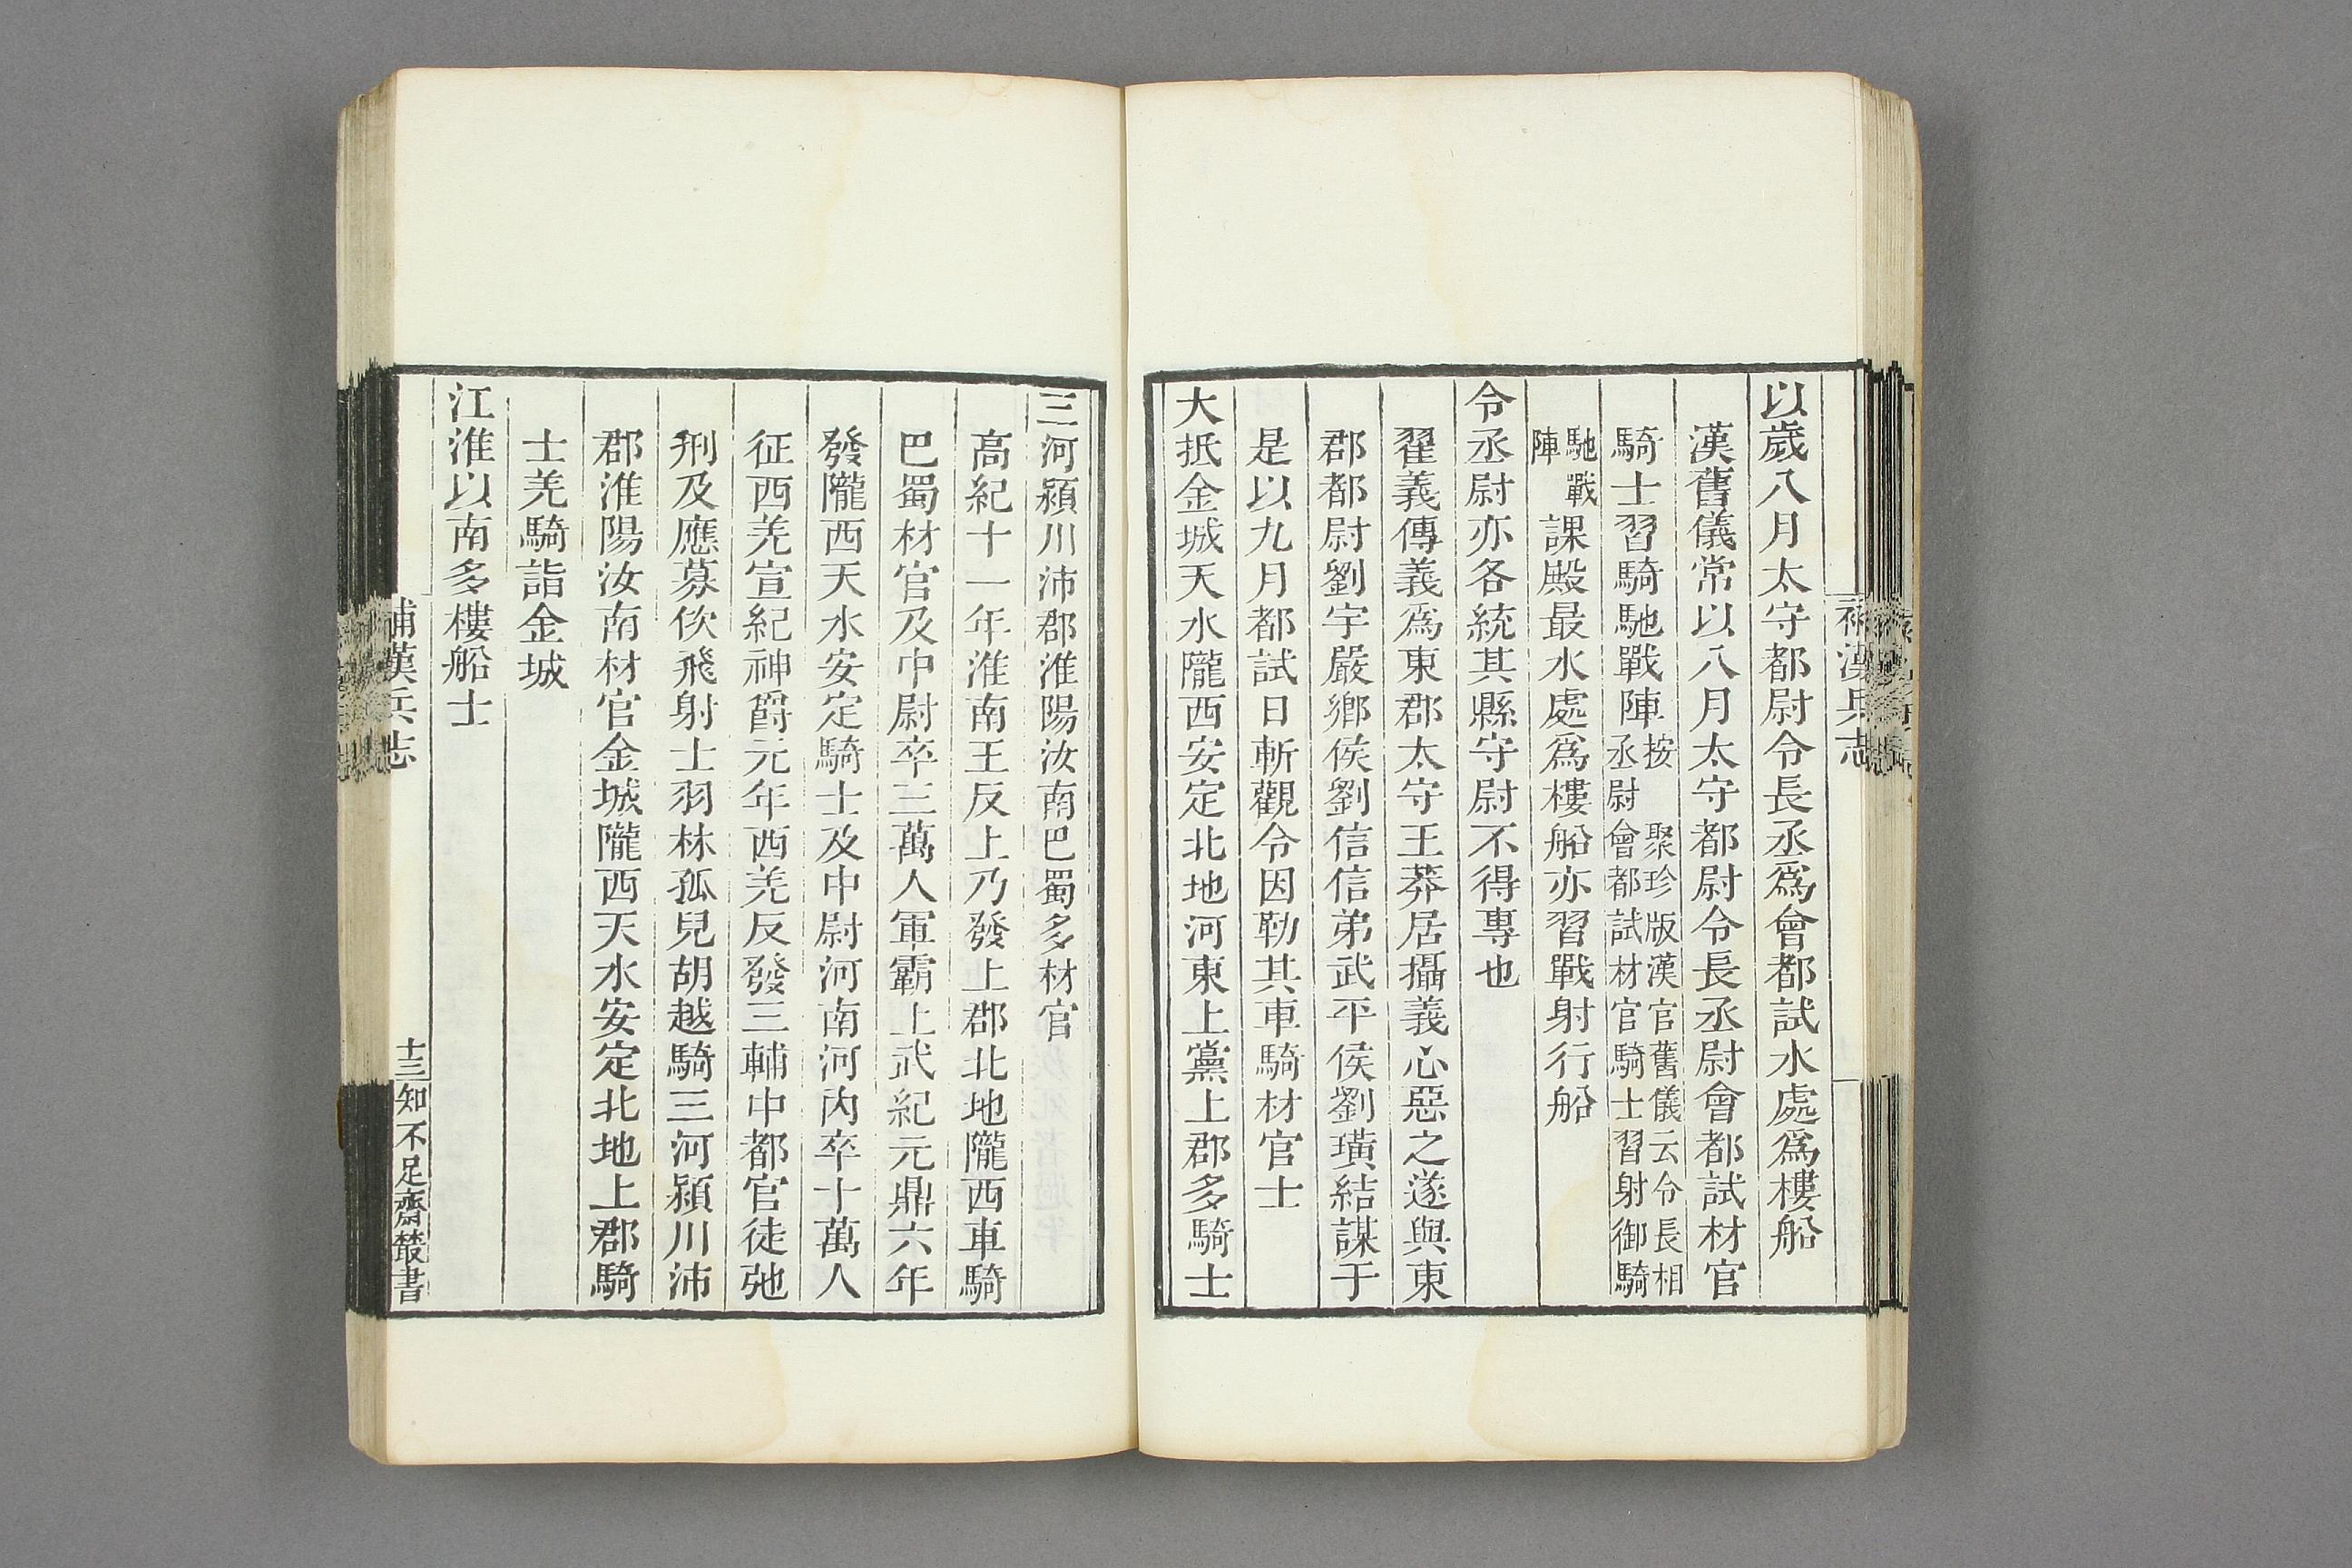 以歲八月太守都尉令長丞爲會都試水處爲樓船
漢舊儀常以八月太守都尉令長丞尉會都試材官
騎士習騎馳戰陣按 聚珍版漢官舊儀云令長相丞尉 會都試材官騎士習射御騎
馳戰陣課殿最水處爲樓船亦習戰射行船
令丞尉亦各統其縣守尉不得專也
翟義傳義爲東郡太守王莽居攝義心惡之遂與東
郡都尉劉宇嚴鄉侯劉信信弟武平侯劉璜結謀于
是以九月都試日斬觀令因勒其車騎材官士
大抵金城天水隴西安定北地河東上黨上郡多騎士
三河潁川沛郡淮陽汝南巴蜀多材官
高紀十一年淮南王反上乃發上郡北地隴西車騎
巴蜀材官及中尉卒三萬人軍霸上武紀元鼎六年
發隴西天水安定騎士及中尉河南河內卒十萬人
征西羌宣紀神爵元年西羌反發三輔中都官徒弛
刑及應募佽飛射士羽林孤兒胡越騎三河潁川沛
郡淮陽汝南材官金城隴西天水安定北地上郡騎
士羌騎詣金城
江淮以南多樓船士
補漢兵志
十三
知不足齋叢書